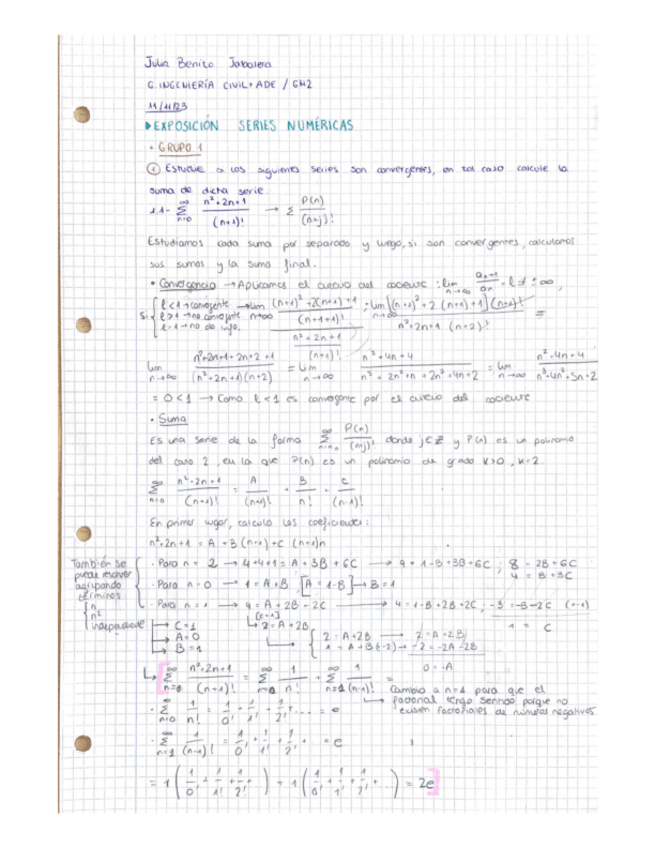 Julia Benito Jabalera
G. INGENIERÍA CIVIL + ADE / GM2
11/11/23
▸EXPOSICIÓN SERIES NUMÉRICAS
• GRUPO 1
① Estudie si las siguientes series son convergentes, en tal caso calcule la
suma de dicha serie.
1.1- ∞ Σ n=0 n²+2n+1 / (n+1)! → Σ P(n) / (n+j)!
Estudiamos cada suma por separado y luego, si son convergentes, calculamos
sus sumas y la suma final.
• Convergencia → Aplicamos el criterio del cociente: lim n→∞ an+1 / an = l ≠ ±∞,
Si { l<1 → convergente
l>1 → no convergente
l=1 → no da info.
lim n→∞ (n+1)²+2(n+1)+1 / (n+1+1)! / n²+2n+1 / (n+1)! = lim n→∞ [(n+1)²+2(n+1)+1](n+1)! / n²+2n+1 (n+2)! =
lim n→∞ n²+2n+1+2n+2+1 / (n²+2n+1)(n+2) = lim n→∞ n²+4n+4 / n³+2n²+n+2n²+4n+2 = lim n→∞ n²+4n+4 / n³+4n²+5n+2
= 0 < 1 → Como l<1 es convergente por el criterio del cociente
• Suma
Es una serie de la forma ∞ Σ n=n₀ P(n) / (n+j)! donde j∈ℤ y P(n) es un polinomio
del caso 2, en la que P(n) es un polinomio de grado k>0, k=2.
∞ Σ n=0 n²+2n+1 / (n+1)! = A / (n+1)! + B / n! + C / (n-1)!
En primer lugar, calculo los coeficientes:
n²+2n+1 = A + B(n+1) + C (n+1)n
También se
puede resolver
agrupando
términos
{ n
n²
independiente
· Para n = 2 → 4+4+1 = A + 3B + 6C → 9 = 1-B+3B+6C ; 8 = 2B+6C
4 = B+3C
· Para n = 0 → 1 = A+B, [A = 1-B] → B=1
· Para n = 1 → 4 = A + 2B + 2C → 4 = 1-B+2B+2C ; -3 = -B-2C (×-1)
1 = C
→ C=1
→ A=0
→ B=1
[C=1]
→ 2 = A+2B
{ 2 = A+2B → 2 = A+2B
1 = A+B (×-2) → -2 = -2A-2B
0 = -A
→ [ ∞ Σ n=0 n²+2n+1 / (n+1)! = ∞ Σ n=0 1 / n! + ∞ Σ n=1 1 / (n-1)! =
→ Cambia a n=1 para que el
factorial tenga sentido porque no
existen factoriales de números negativos.
· ∞ Σ n=0 1 / n! = 1/0! + 1/1! + 1/2! + ... = e
· ∞ Σ n=1 1 / (n-1)! = 1/0! + 1/1! + 1/2! + = e
= 1 ( 1/0! + 1/1! + 1/2! + ... ) + 1 ( 1/0! + 1/1! + 1/2! + ... ) = 2e ]